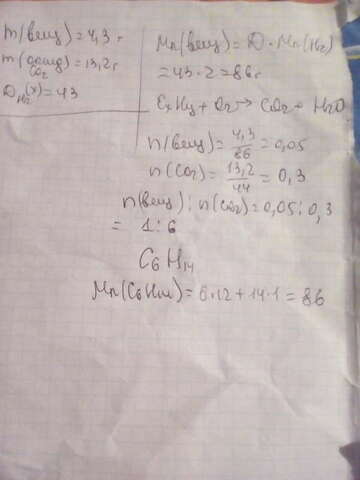 m(вещ)=4,3 г
m(оксид)=13,2 г
CO₂
D H₂(x)=43
Mr(вещ)=D·Mr(H₂)
=43·2=86 г
CxHy+O₂→CO₂+H₂O
n(вещ)=4,3/86=0,05
n(CO₂)=13,2/44=0,3
n(вещ):n(CO₂)=0,05:0,3
= 1:6
C₆H₁₄
Mr(C₆H₁₄)=6·12+14·1=86